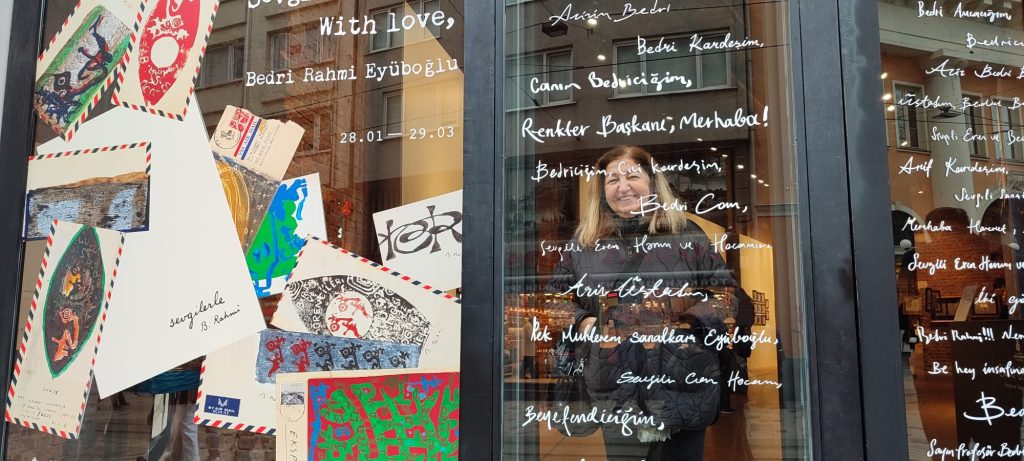 With love,
Bedri Rahmi Eyüboğlu
28.01 — 29.03
sevgilerle
B. Rahmi
Azizim Bedri
Bedri Kardeşim,
Canım Bedriciğim,
Renkler Başkanı, Merhaba!
Bedriciğim, Cici kardeşim,
Bedri Can,
Sevgili Eren Hanım ve Hocamıza
Aziz Üstadım,
Pek Muhterem sanatkâra Eyüboğlu,
Sevgili Eren Hocam,
Beyefendiciğim,
Bedri Amcacığım,
Bedrici
Aziz Bedri B
Üstadım, Bedri
Sevgili Eren ve Be
Arif Kardeşim,
Sevgili
Merhaba
Sevgili Eren Hanım v
İki
Bedri Rahmi!!! Ne
Be hey insafsı
Be
Sayın Profesör Bedri